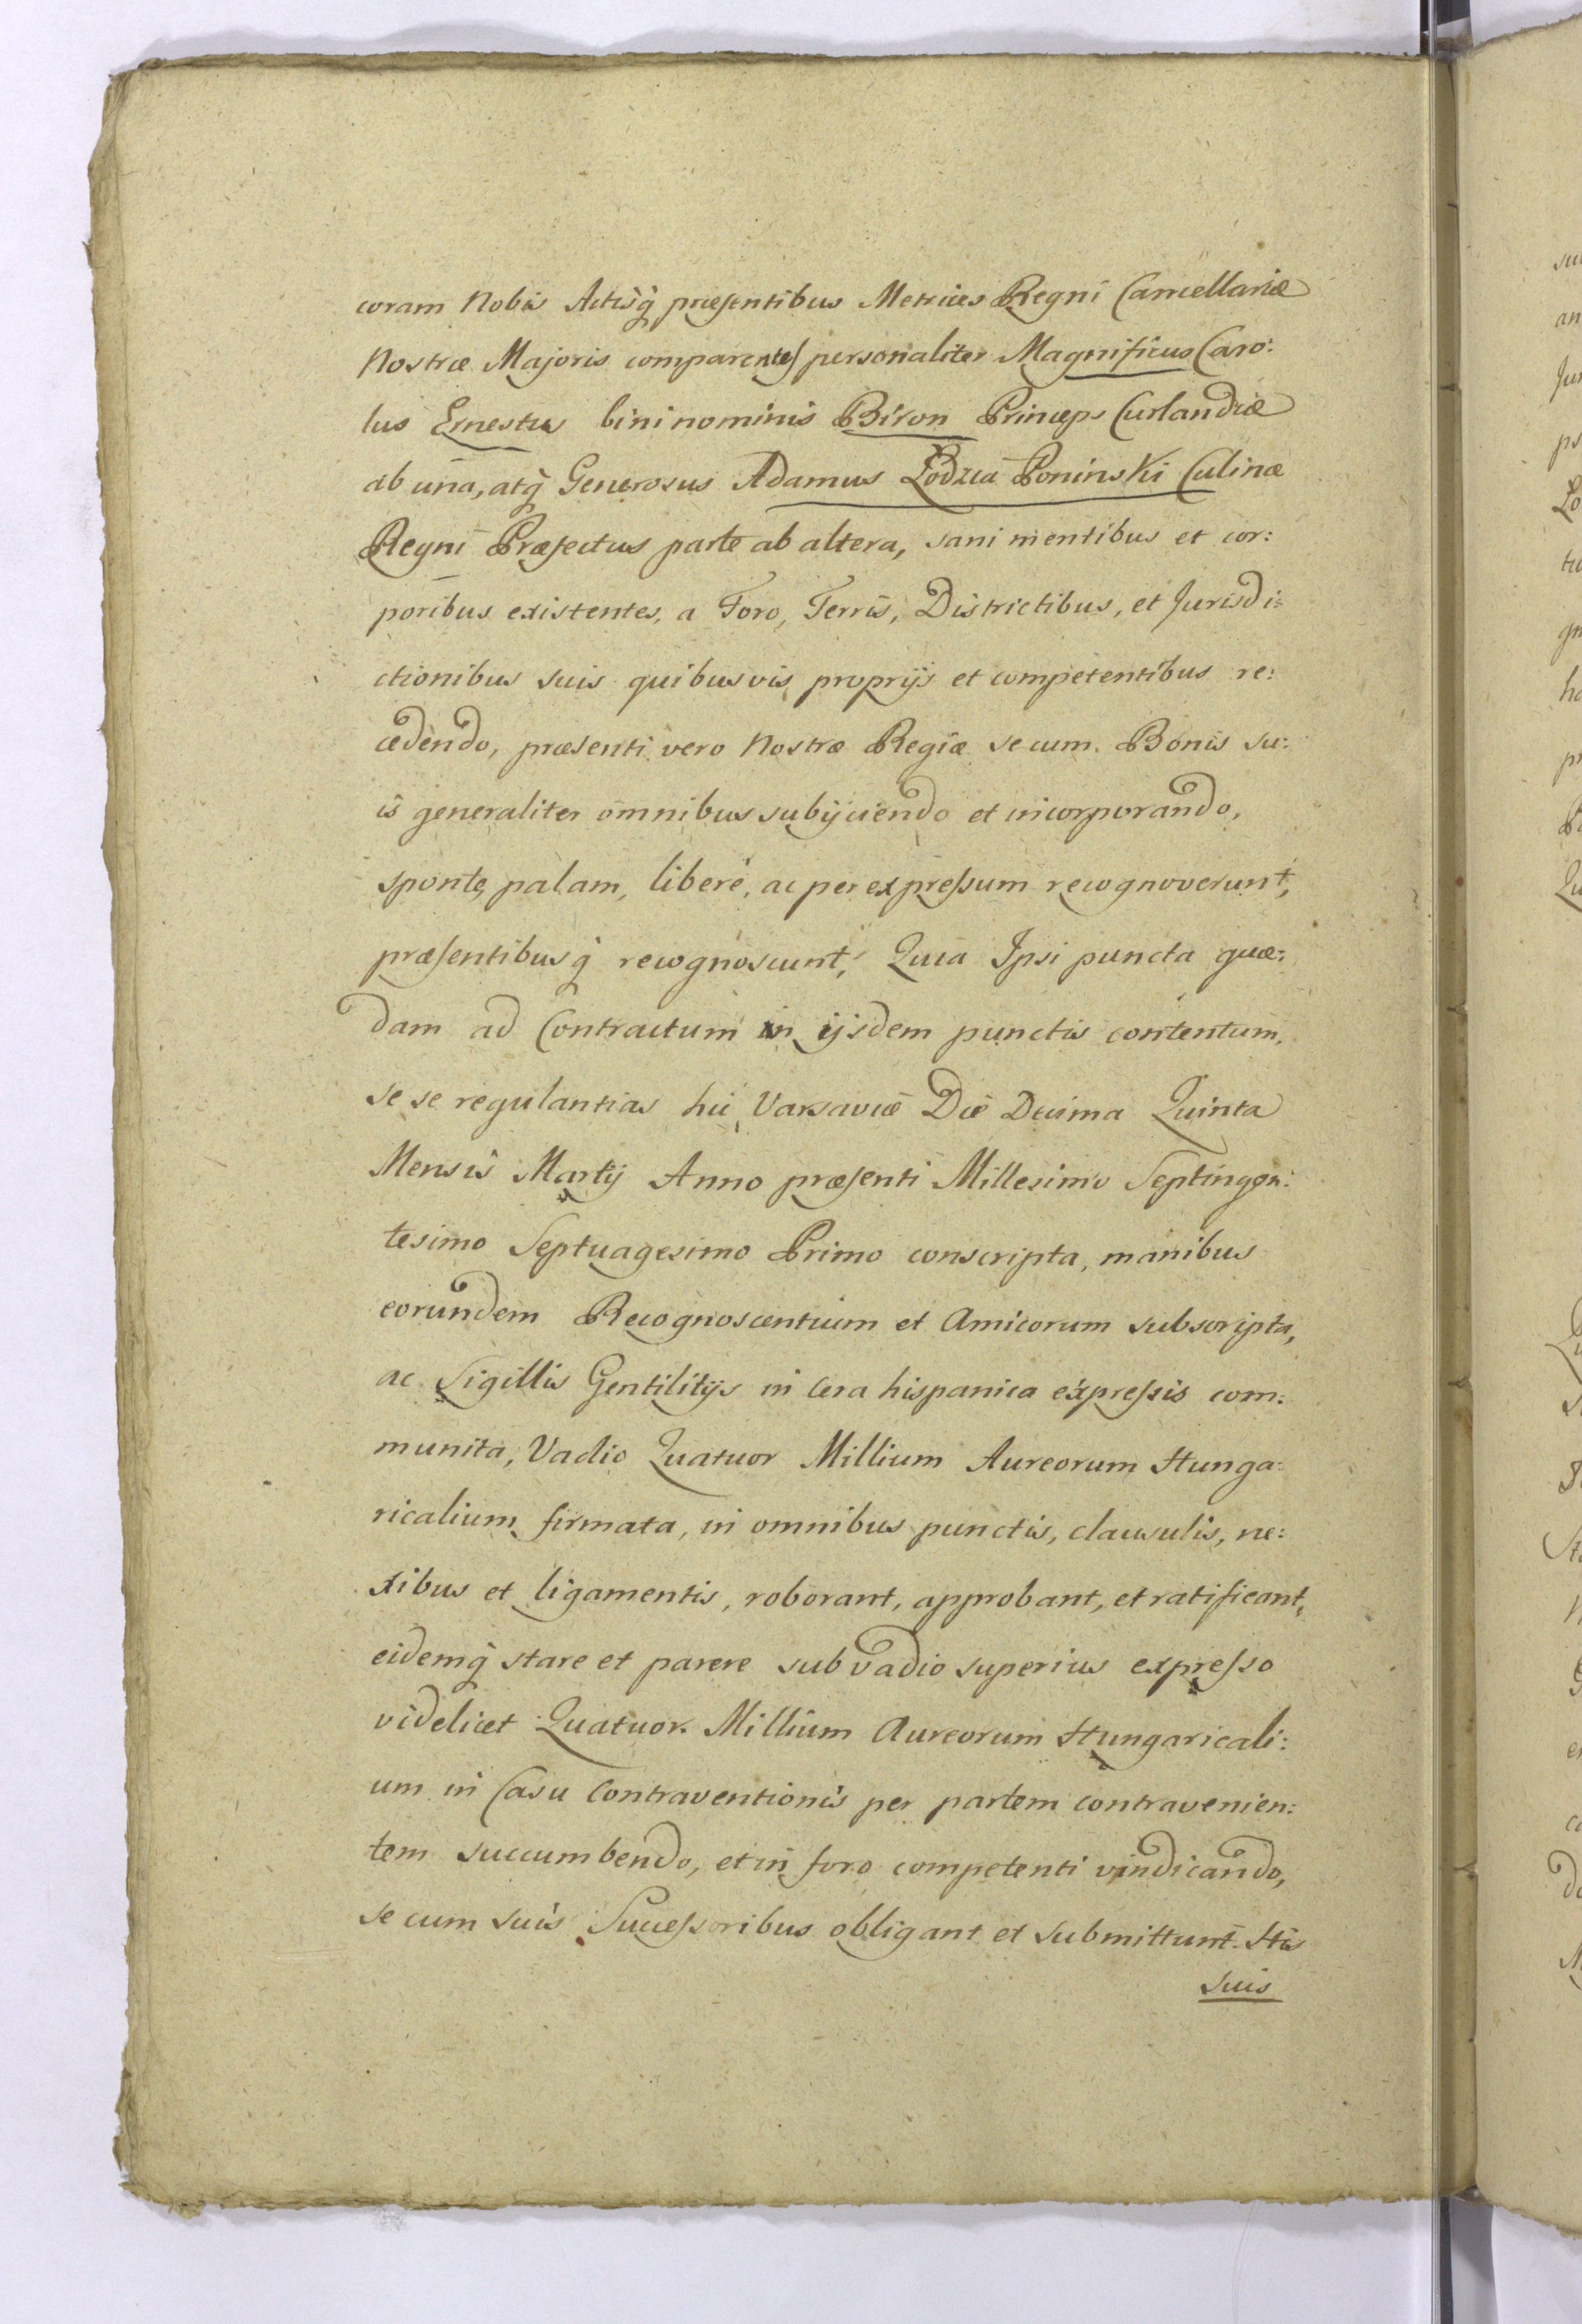 coram Nobis Actisq̀ præsentibus Metrices Regni Cancellariæ
Nostræ Majoris comparentes personaliter Magnificus Caro:
lus Ernestus bini nominis Biron Princeps Curlandiæ
ab una, atq̀ Generosus Adamus Łodzia Poninski Culinæ
Regni Præfectus parte ab altera, sani mentibus et cor:
poribus existentes, a Foro, Terris, Districtibus, et Jurisdi:
ctionibus suis quibusvis proprijs et competentibus re:
cedendo, præsenti vero Nostræ Regiæ se cum Bonis su:
is generaliter omnibus subijciendo et incorporando,
sponte, palam, liberè, ac per expressum recognoverunt,
præsentibusq̀ recognoscunt, Quia Ipsi puncta quæ:
dam ad Contractum in ijsdem punctis contentum,
se se regulantias hic Varsaviæ Die Decima Quinta
Mensis Martij Anno præsenti Millesimo Septingen:
tesimo Septuagesimo Primo conscripta, manibus
eorundem Recognoscentium et Amicorum subscripta,
ac Sigillis Gentilitijs in Cera hispanica expressis com:
munita, Vadio Quatuor Millium Aureorum Hunga:
ricalium firmata, in omnibus punctis, clausulis, ne:
xibus et ligamentis, roborant, approbant, et ratificant,
eidemq̀ stare et parere sub vadio superius expresso
videlicet Quatuor Millium Aureorum Hungaricali:
um in Casu Contraventionis per partem contravenien:
tem succumbendo, et in foro competenti vindicando,
se cum suis Successoribus obligant et submittunt. His
suis